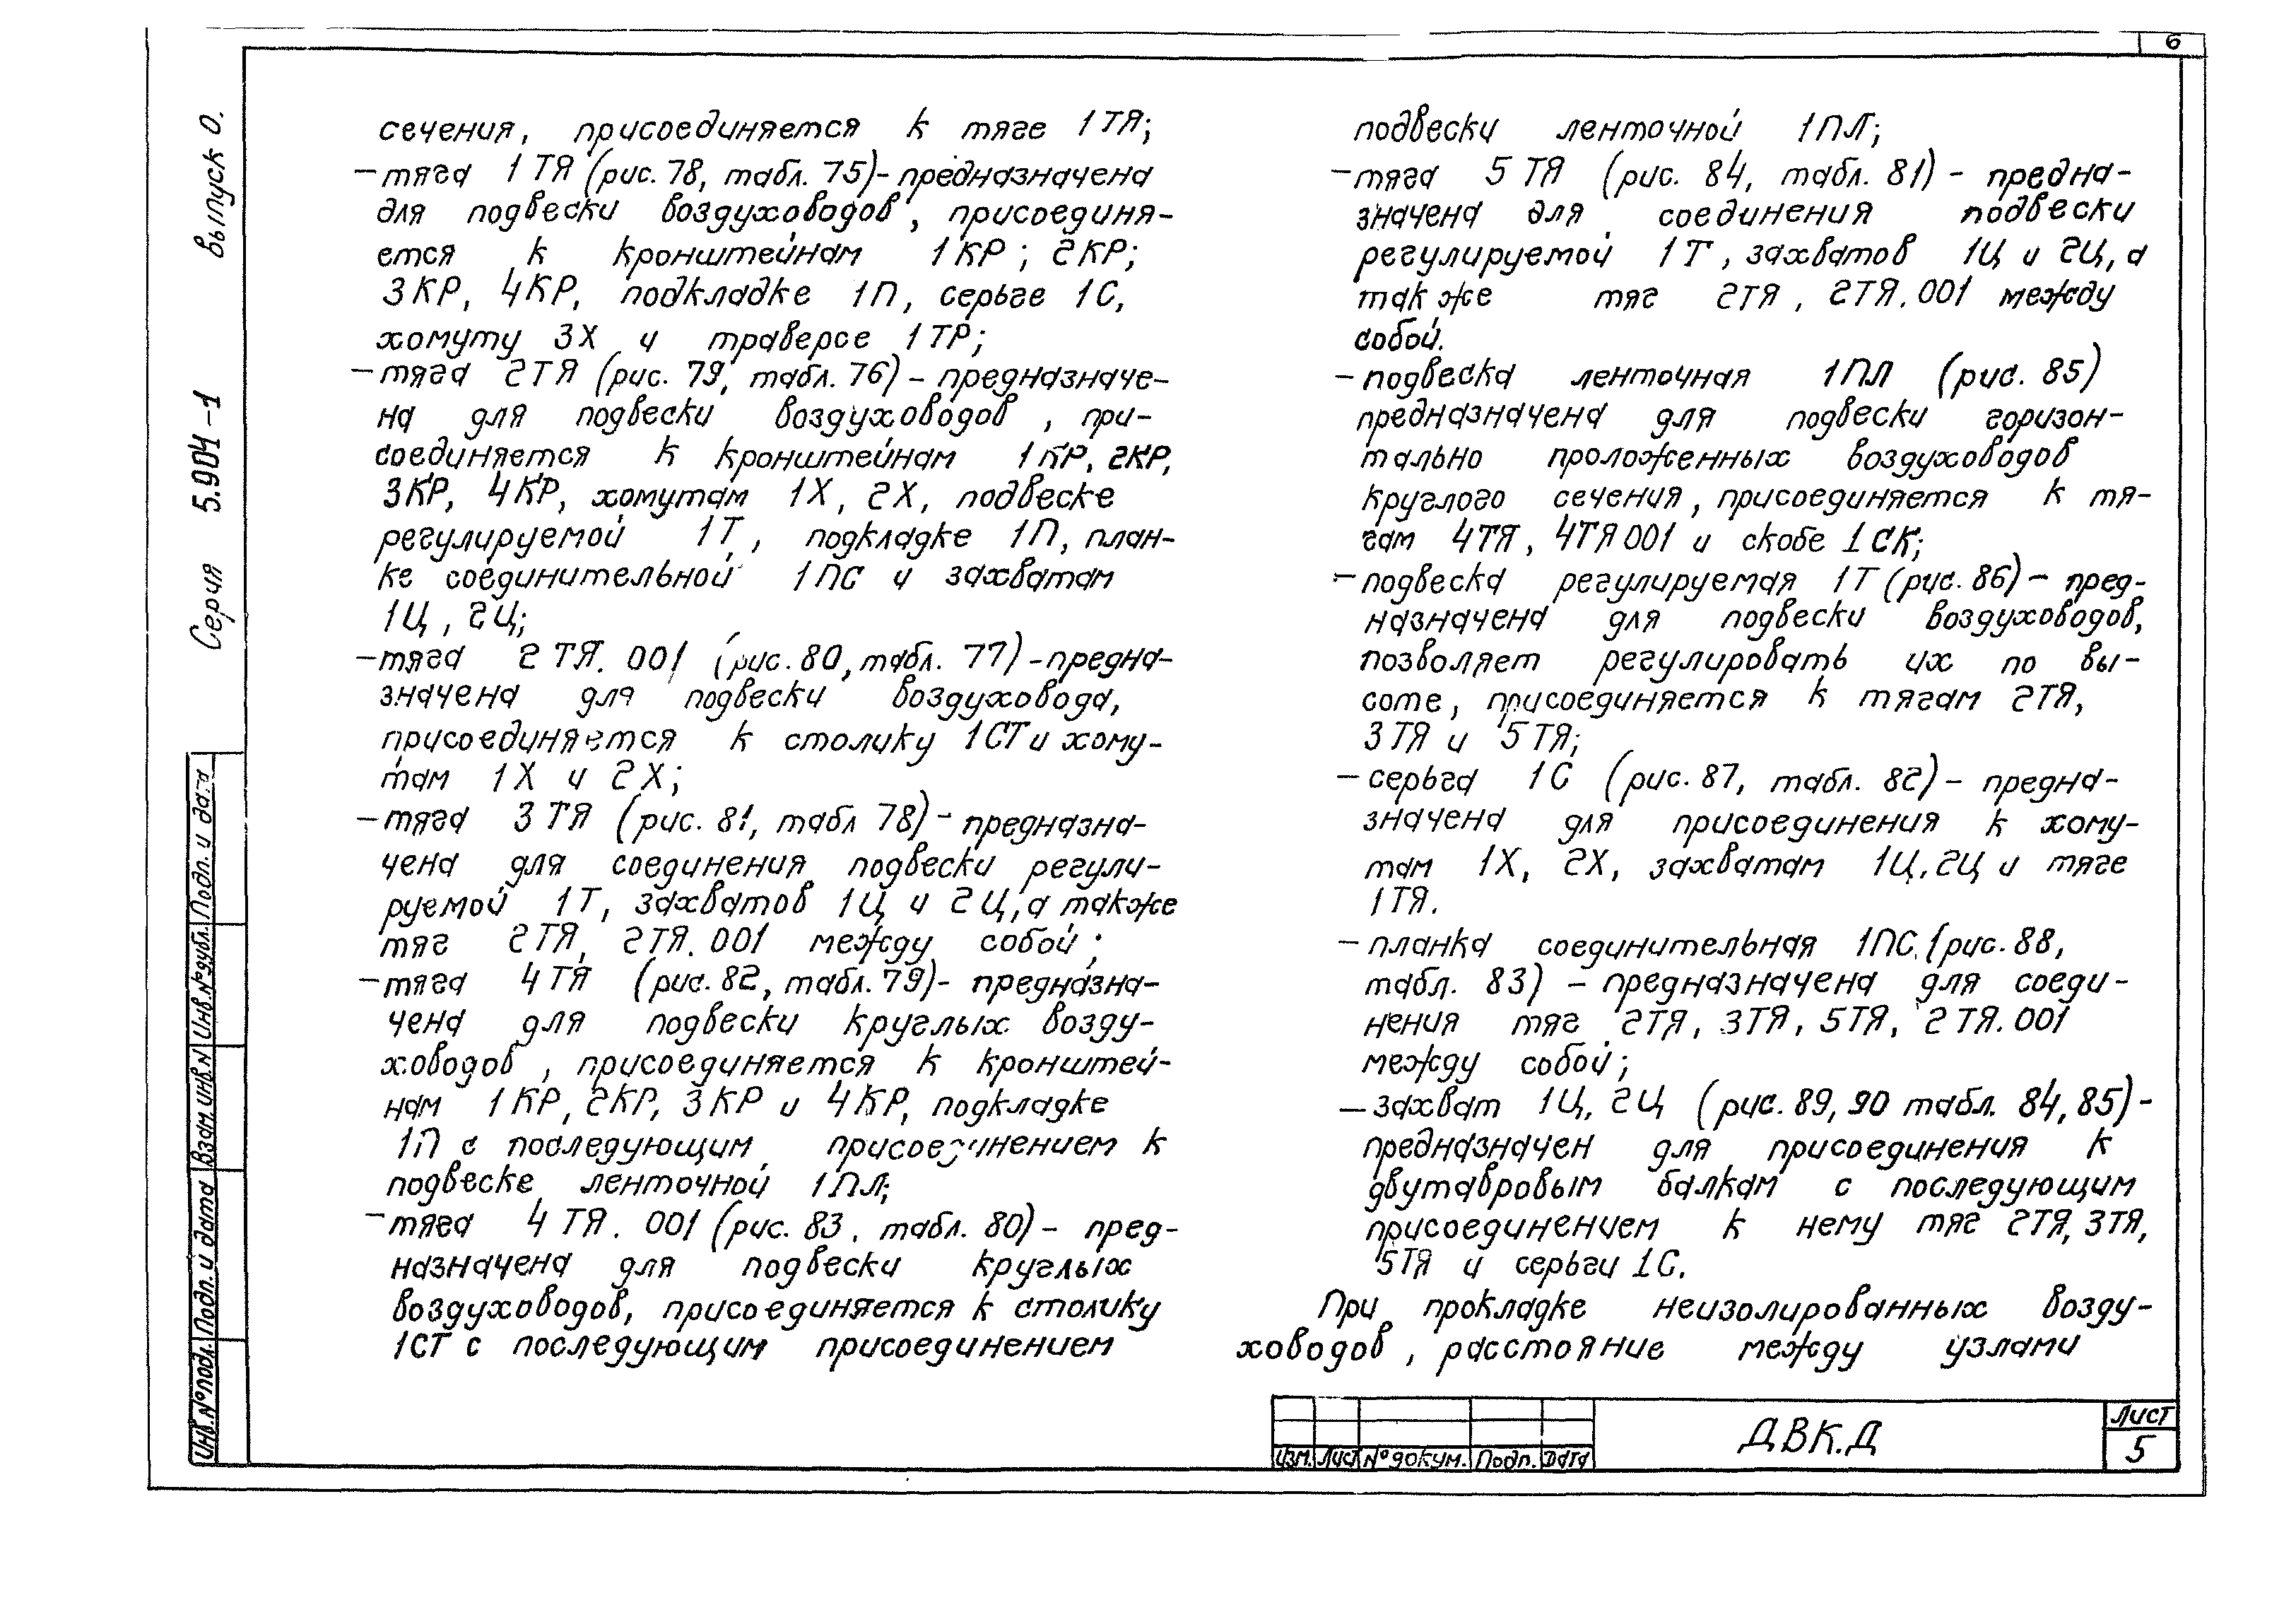 6
сечения, присоединяется к тяге 1ТЯ;
— тяга 1ТЯ (рис. 78, табл. 75) - предназначена
для подвески воздуховодов, присоединя-
ется к кронштейнам 1КР; 2КР;
3КР, 4КР, подкладке 1П, серьге 1С,
хомуту 3Х и траверсе 1ТР;
— тяга 2ТЯ (рис. 79, табл. 76) - предназначе-
на для подвески воздуховодов, при-
соединяется к кронштейнам 1КР, 2КР,
3КР, 4КР, хомутам 1Х, 2Х, подвеске
регулируемой 1Т, подкладке 1П, план-
ке соединительной 1ПС и захватам
1Ц, 2Ц;
— тяга 2ТЯ.001 (рис. 80, табл. 77) - предна-
значена для подвески воздуховода,
присоединяется к столику 1СТ и хому-
там 1Х и 2Х;
— тяга 3ТЯ (рис. 81, табл 78) - предназна-
чена для соединения подвески регули-
руемой 1Т, захватов 1Ц и 2Ц, а также
тяг 2ТЯ, 2ТЯ.001 между собой;
— тяга 4ТЯ (рис. 82, табл. 79) - предназна-
чена для подвески круглых возду-
ховодов, присоединяется к кронштей-
нам 1КР, 2КР, 3КР и 4КР, подкладке
1П с последующим присоединением к
подвеске ленточной 1ПЛ;
— тяга 4ТЯ.001 (рис. 83, табл. 80) - пред-
назначена для подвески круглых
воздуховодов, присоединяется к столику
1СТ с последующим присоединением
подвески ленточной 1ПЛ;
— тяга 5ТЯ (рис. 84, табл. 81) - предна-
значена для соединения подвески
регулируемой 1Т, захватов 1Ц и 2Ц, а
так же тяг 2ТЯ, 2ТЯ.001 между
собой.
— подвеска ленточная 1ПЛ (рис. 85)
предназначена для подвески горизон-
тально проложенных воздуховодов
круглого сечения, присоединяется к тя-
гам 4ТЯ, 4ТЯ001 и скобе 1СК;
— подвеска регулируемая 1Т (рис. 86) - пред-
назначена для подвески воздуховодов,
позволяет регулировать их по вы-
соте, присоединяется к тягам 2ТЯ,
3ТЯ и 5ТЯ;
— серьга 1С (рис. 87, табл. 82) - предна-
значена для присоединения к хому-
там 1Х, 2Х, захватам 1Ц, 2Ц и тяге
1ТЯ.
— планка соединительная 1ПС (рис. 88,
табл. 83) - предназначена для соеди-
нения тяг 2ТЯ, 3ТЯ, 5ТЯ, 2ТЯ.001
между собой;
— захват 1Ц, 2Ц (рис. 89, 90 табл. 84, 85) -
предназначен для присоединения к
двутавровым балкам с последующим
присоединением к нему тяг 2ТЯ, 3ТЯ,
5ТЯ и серьги 1С.
При прокладке неизолированных возду-
ховодов, расстояние между узлами
Серия 5.904-1 выпуск 0.
Инв. № подл. Подп. и дата Взам. инв. № Инв. № дубл. Подп. и дата
Изм. Лист № докум. Подп. Дата
ДВК.Д
Лист
5